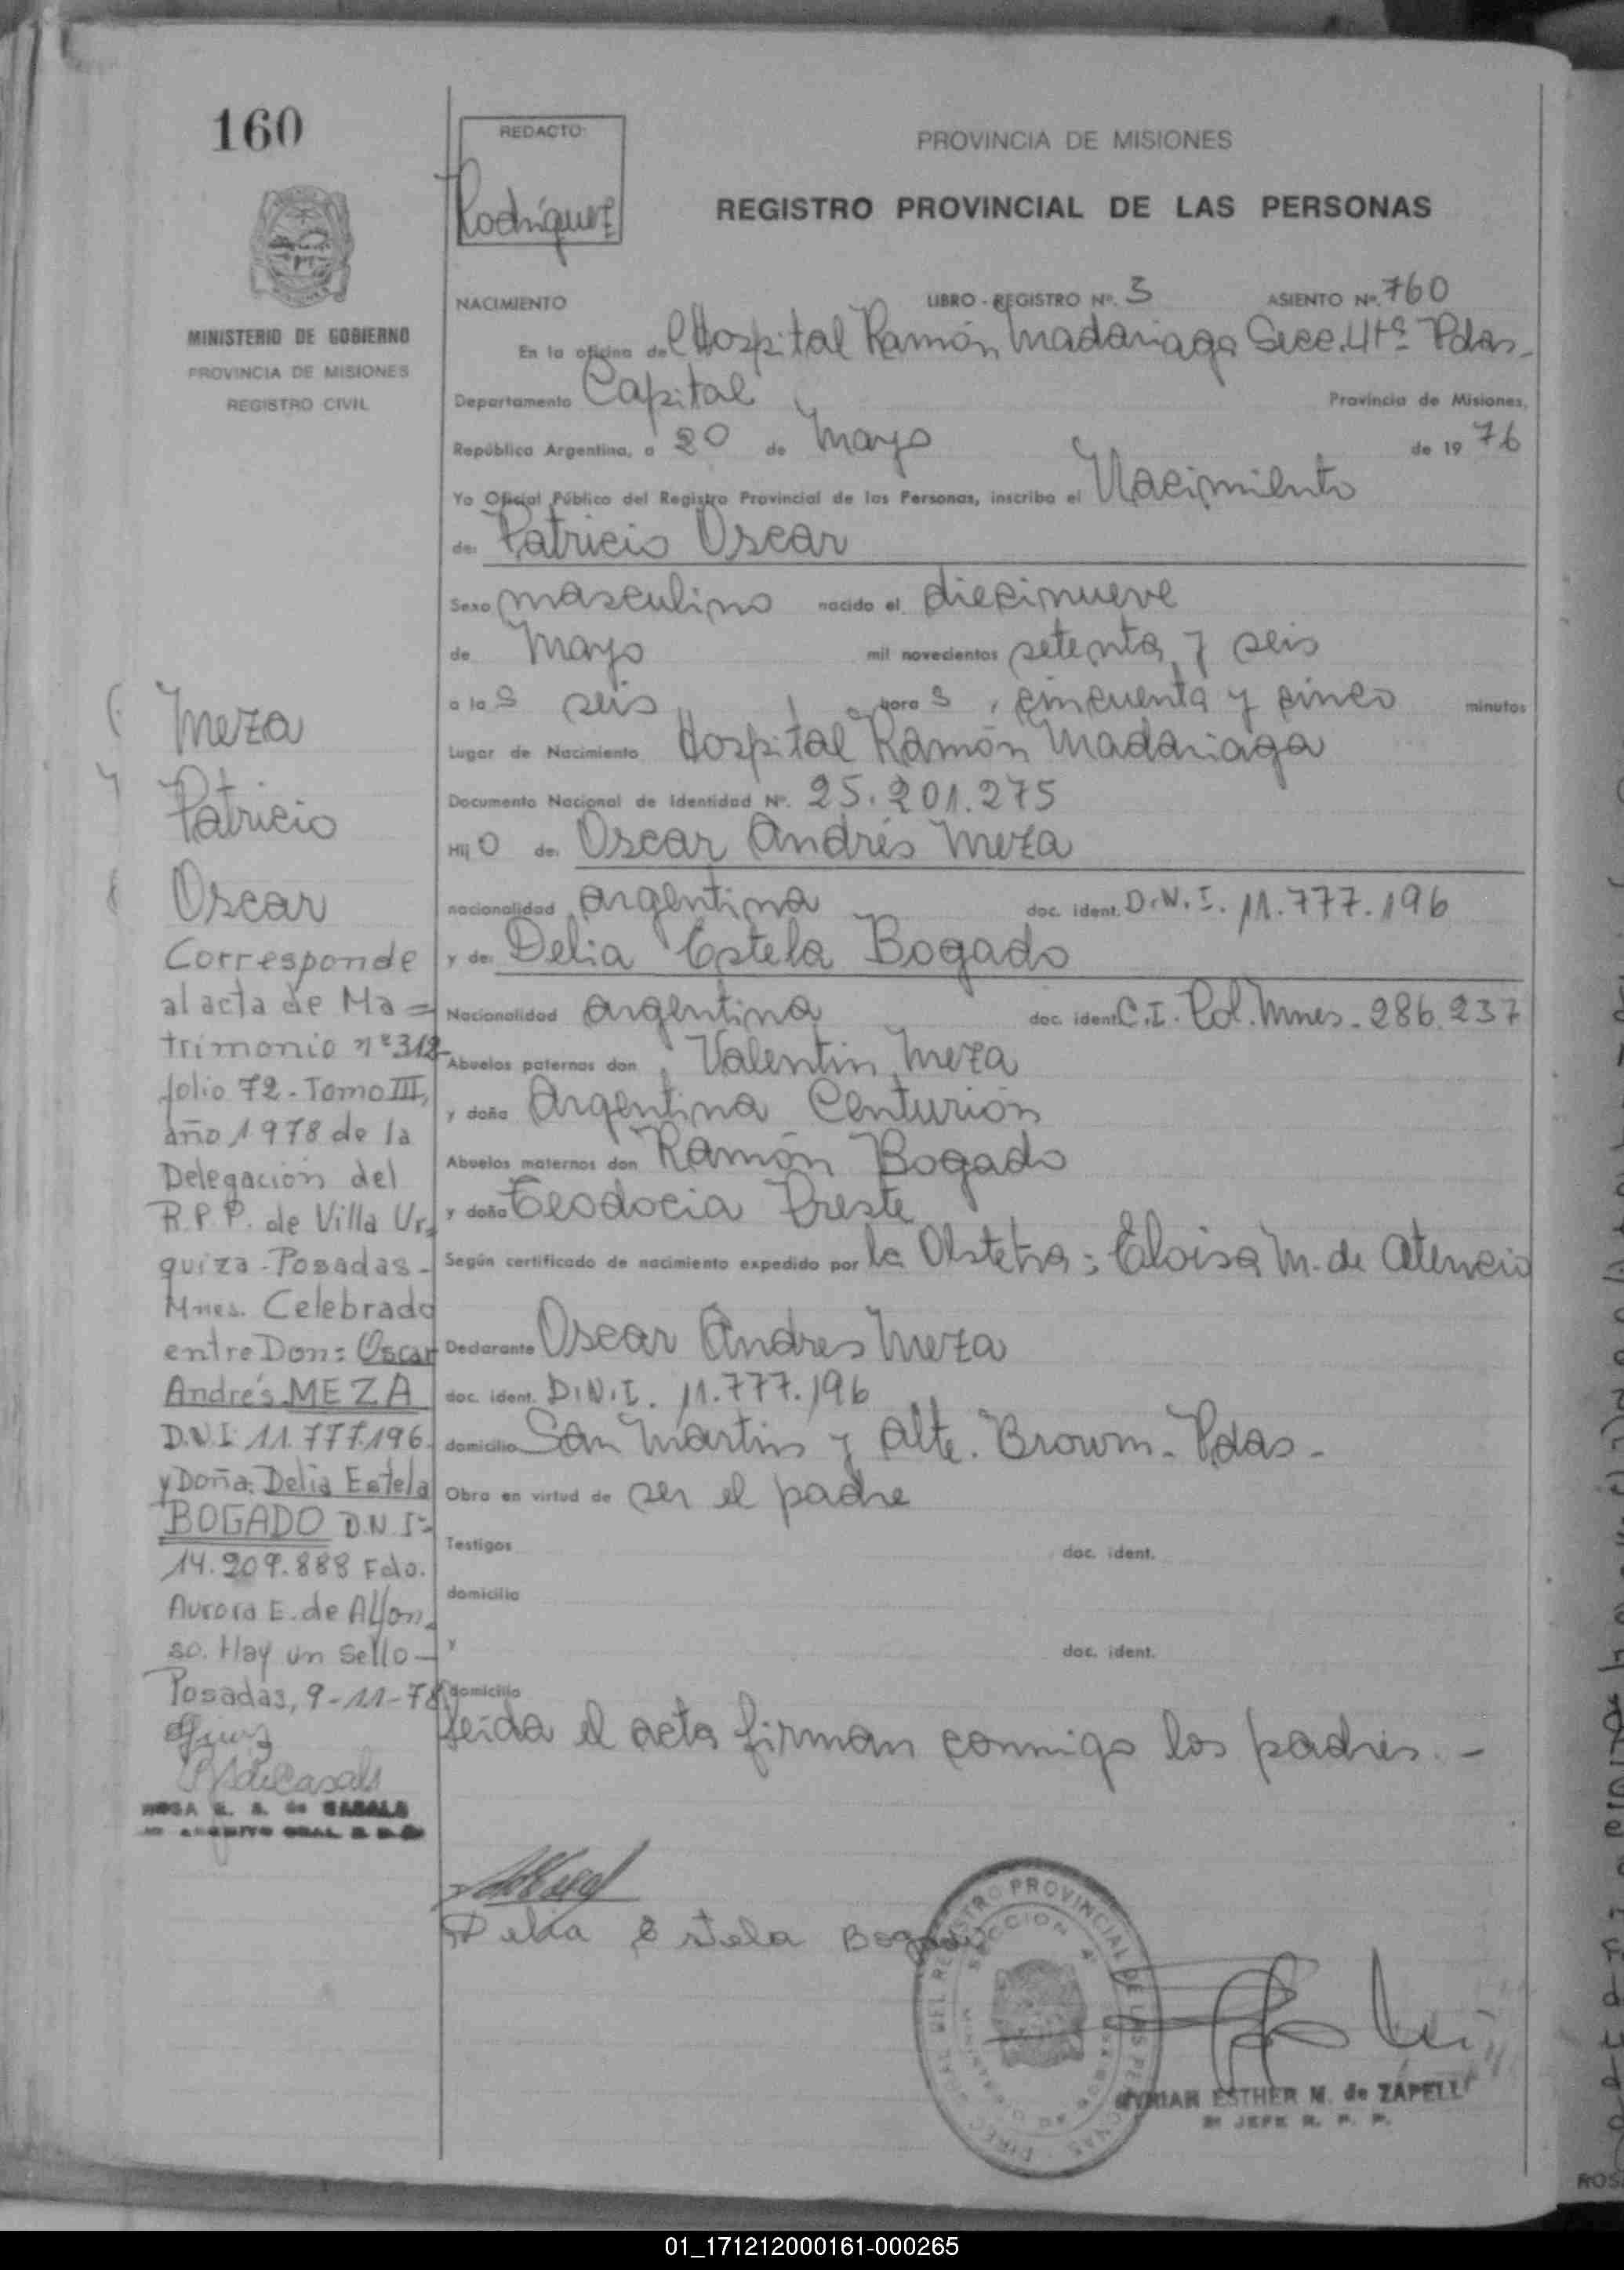 160
REDACTO:
Rodríguez
PROVINCIA DE MISIONES
REGISTRO PROVINCIAL DE LAS PERSONAS
MINISTERIO DE GOBIERNO
PROVINCIA DE MISIONES
REGISTRO CIVIL
NACIMIENTO LIBRO - REGISTRO Nº. 3 ASIENTO Nº. 760
En la oficina del Hospital Ramón Madariaga Secc. 4ta Pdas-
Departamento Capital Provincia de Misiones,
República Argentina, a 20 de Mayo de 1976
Yo Oficial Público del Registro Provincial de las Personas, inscribo el Nacimiento
de: Patricio Oscar
Sexo masculino nacido el diecinueve
de Mayo mil novecientos setenta y seis
a las seis horas, cincuenta y cinco minutos
Lugar de Nacimiento Hospital Ramón Madariaga
Documento Nacional de Identidad Nº. 25.201.275
Hijo de: Oscar Andrés Meza
nacionalidad argentina doc. ident. D.N.I. 11.777.196
y de: Delia Estela Bogado
Nacionalidad argentina doc. ident. C.I. Pol. Mnes - 286.237
Abuelos paternos don Valentin Meza
y doña Argentina Centurión
Abuelos maternos don Ramón Bogado
y doña Teodocia Preste
Según certificado de nacimiento expedido por la Obstetra: Eloisa M. de Atencio
Declarante Oscar Andres Meza
doc. ident. D.N.I. 11.777.196
domicilio San Martin y Alte. Brown - Pdas -
Obra en virtud de ser el padre
Testigos doc. ident.
domicilio
y doc. ident.
domicilio
leida el acta firman conmigo los padres. -
Meza
Patricio
Oscar
Corresponde
al acta de Ma=
trimonio nº 312-
folio 72 - Tomo III,
año 1978 de la
Delegación del
R.P.P. de Villa Ur=
quiza - Posadas -
Mnes. Celebrado
entre Don: Oscar
Andrés MEZA
D.N.I. 11.777.196.
y Doña: Delia Estela
BOGADO D.N.I=
14.209.888 Fdo.
Aurora E. de Alfon=
so. Hay un sello -
Posadas, 9-11-78
de CASALS
Delia Estela Bogado
REGISTRO PROVINCIAL DE LAS PERSONAS
SECCION 4ª
MYRIAN ESTHER M. de ZAPELLI
JEFE R. P. P.
01_171212000161-000265